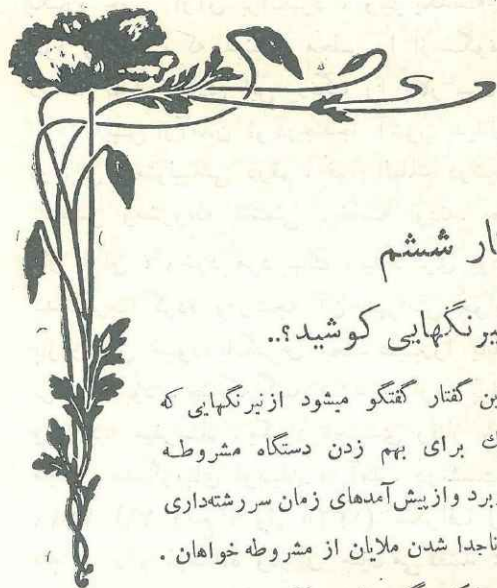 ار ششم
یرنگهایی کوشید؟..
ن گفتار گفتگو میشود ازنیرنگهایی که
ك برای بهم زدن دستگاه مشروطه
برد وازپیش‌آمدهای زمان سررشته‌داری
تاجدا شدن ملایان از مشروطه خواهان .